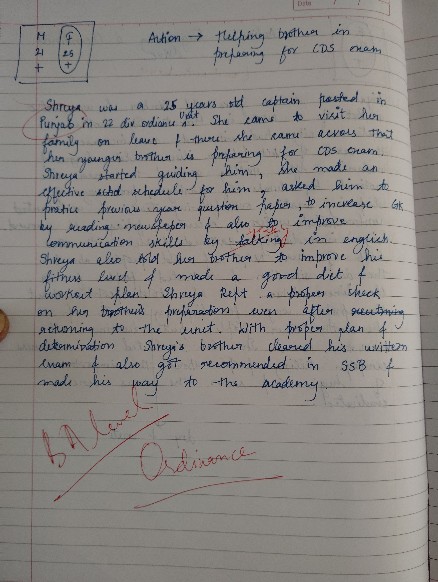 Date
M F
21 25
+ +
Action → Helping brother in
preparing for CDS exam
Shreya was a 25 years old captain posted in
Punjab in 22 div ordiance unit. She came to visit her
family on leave & there she came across that
her younger brother is preparing for CDS exam.
Shreya started guiding him, She made an
effective schedule for him, asked him to
pratice previous year question paper, to increase GK
by reading newspaper & also to improve
communication skills by talking in english.
Shreya also told her brother to improve his
fitness level & made a good diet &
workout plan. Shreya kept a proper check
on her brother's preparation even after
to the unit. With proper plan &
determination Shreya's brother cleared his written
exam & also got recommended in SSB &
made his way to the academy
BA level
Ordinance